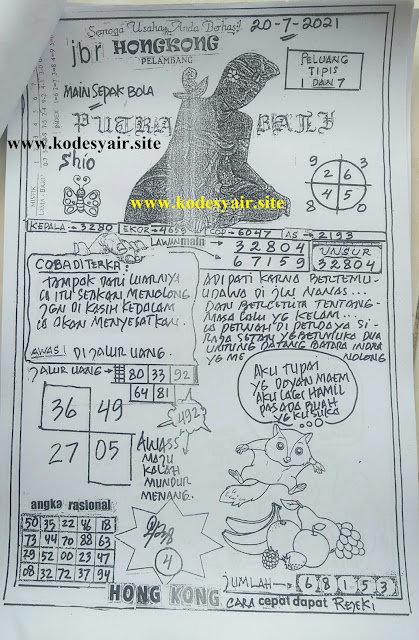 Semoga Usaha Anda Berhasil
20-7-2021
jbr HONGKONG
PELAMBANG
PELUANG
TIPIS
1 DAN 7
MAIN SEPAK BOLA
PUTRA BALI
www.kodesyair.site
Shio
www.kodesyair.site
9 6 3
2 6
4 5
8 0
KEPALA = 3280 EKOR = 4659 COP = 6047 AS = 2193
LAWAN main
32804
67159
UNSUR
32804
COBA DITERKA:
TAMPAK DARI LUARNYA
IA ITU SEAKAN MENOLONG
JGN DI KASIH KEDALAM
IA AKAN MENYESATKAN.
AWAS! DI JALUR UANG.
ADIPATI KARNA BERTEMU
UDAWA DI JLN NANAS...
DAN BERCERITA TENTANG-
MASA LALU YG KELAM...
IA PERNAH DI PERDAYA SI-
RAJA SETAN YG BERMUKA DUA
UNTUNG DATANG BATARA INDRA
YG ME NOLONG
JALUR UANG
80 33 92
64 81
36 49
27 05
492
AWASS
MAJU
KALAH
MUNDUR
MENANG.
AKU TUPAI
YG DOYAN MAEM
AKU LAGI HAMIL
PASADA BUAH
YG KUSUKA
angka rasional
50 35 22 46 18
73 44 70 88 63
29 52 00 23 47
08 32 72 37 94
4
HONG KONG
JUMLAH 6 8 1 5 3
CARA cepat dapat REJEKI